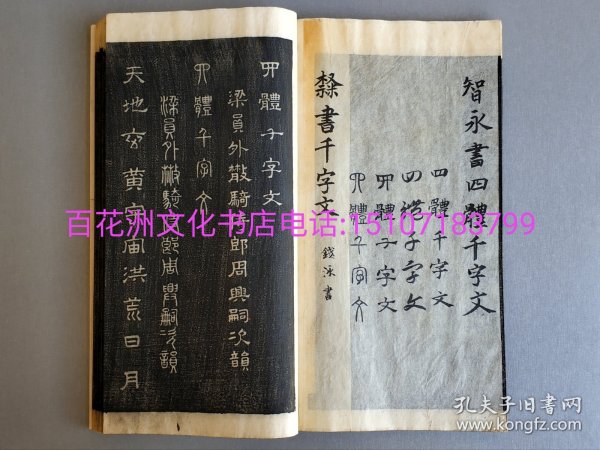 智永書四體千字文
四體千字文
四體千字文
四體千字文
四體千字文
隸書千字文
錢泳書
四體千字文
梁員外散騎侍郎周興嗣次韻
四體千字文
梁員外散騎侍郎周興嗣次韻
天地玄黃宇宙洪荒日月
百花洲文化书店电话:15107183799
孔夫子旧书网